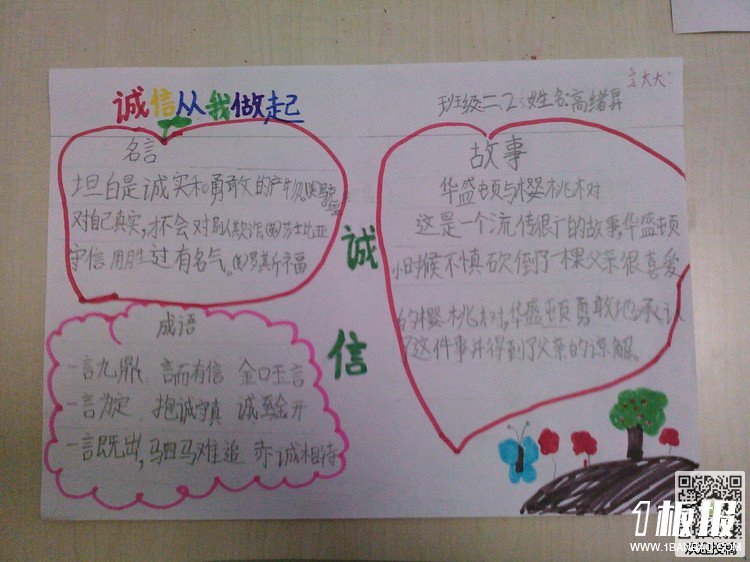 诚信从我做起
班级二、2 姓名:高绪昇
名言
坦白是诚实和勇敢的产物。
对自己真实,才不会对别人欺诈。
守信用胜过有名气。
诚
信
成语
一言九鼎 言而有信 金口玉言
一言为定 抱诚守真 诚至金开
一言既出,驷马难追 亦诚相待
故事
华盛顿与樱桃树
这是一个流传很广的故事,华盛顿
小时候不慎砍倒了一棵父亲很喜爱
的樱桃树,华盛顿勇敢地承认
了这件事并得到了父亲的谅解。
1板报
WWW.1BANBAO.COM
欢迎投稿